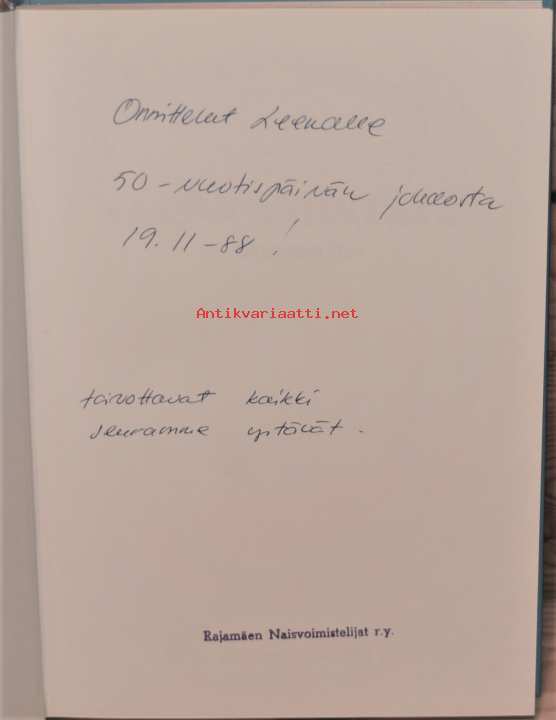 Onnittelut Leenalle
50-vuotispäivän johdosta
19.11-88!
Antikvariaatti.net
toivottavat kaikki
seuramme ystävät.
Rajamäen Naisvoimistelijat r.y.